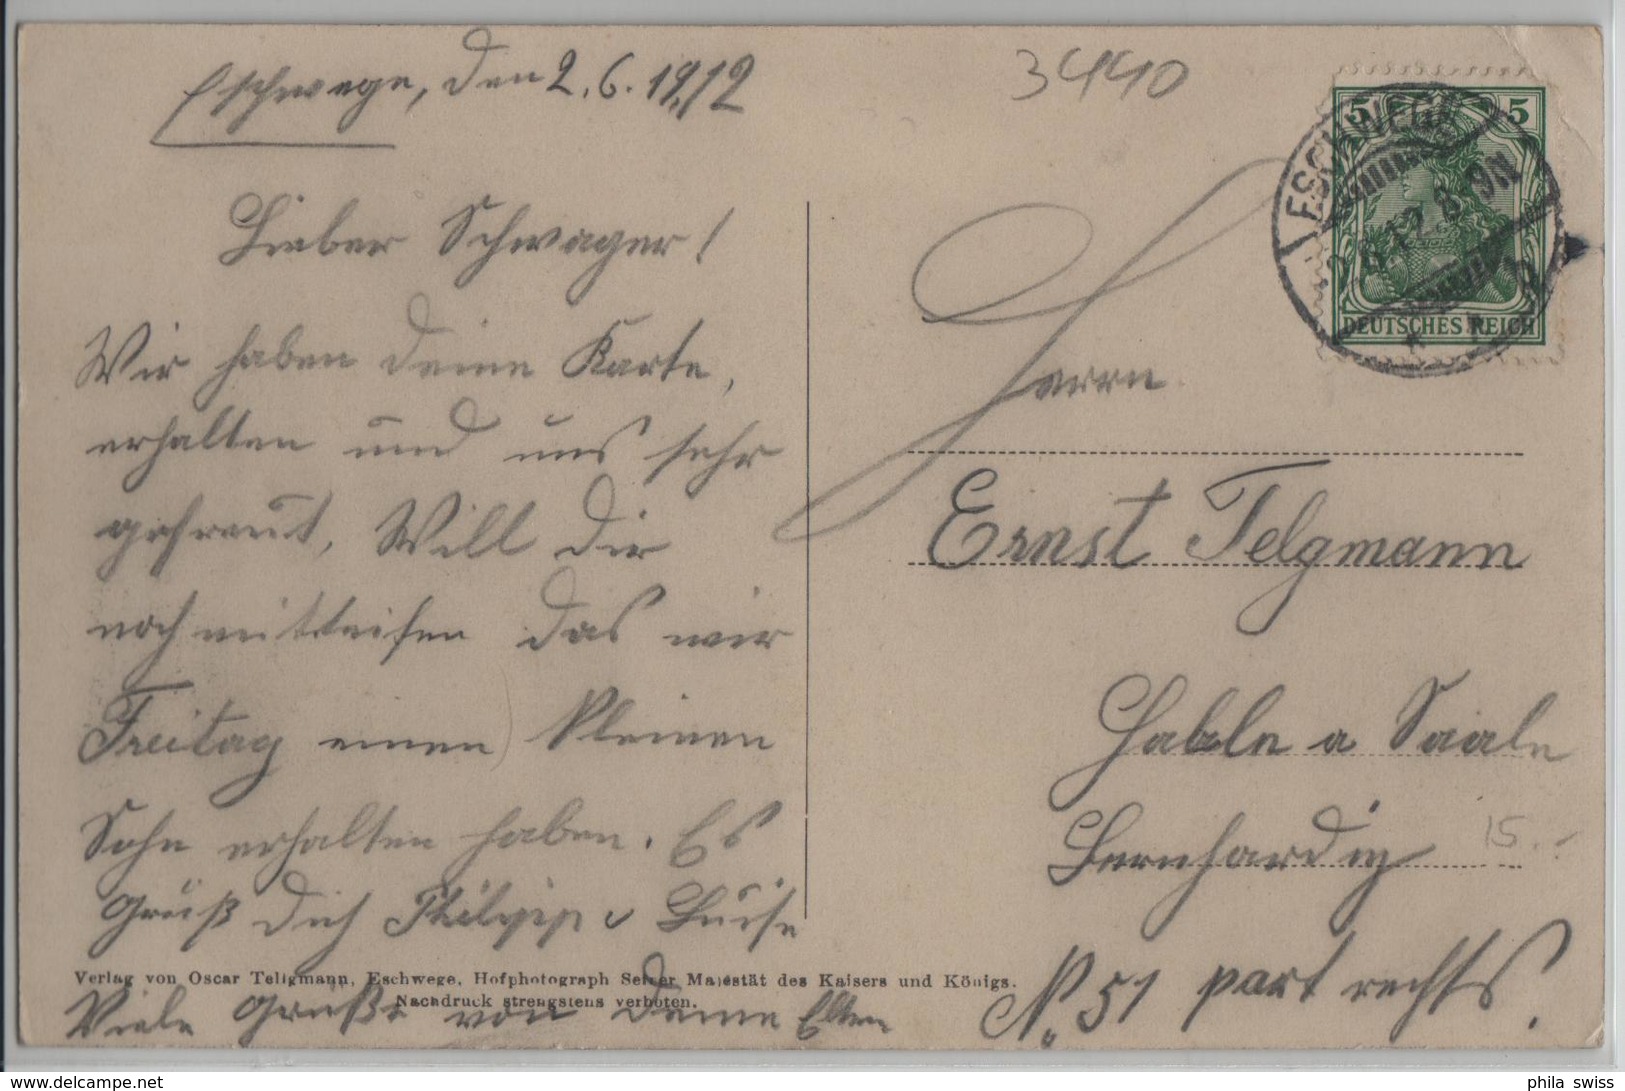 Eschwege, den 2.6.1912
3440
5 5
ESCHWEGE
2.6.12.8-9N
DEUTSCHES REICH
Lieber Schwager!
Wir haben deine Karte,
erhalten und uns sehr
gefreut, Will dir
noch mitteilen das wir
Freitag einen kleinen
Sohn erhalten haben. Es
Grüß dich Philipp u Luise
Viele Grüße von deine Eltern
Herrn
Ernst Telgmann
Halle a Saale
15.-
N. 51 part rechts.
Verlag von Oscar Tellgmann, Eschwege, Hofphotograph Seiner Majestät des Kaisers und Königs.
Nachdruck strengstens verboten.
phila swiss